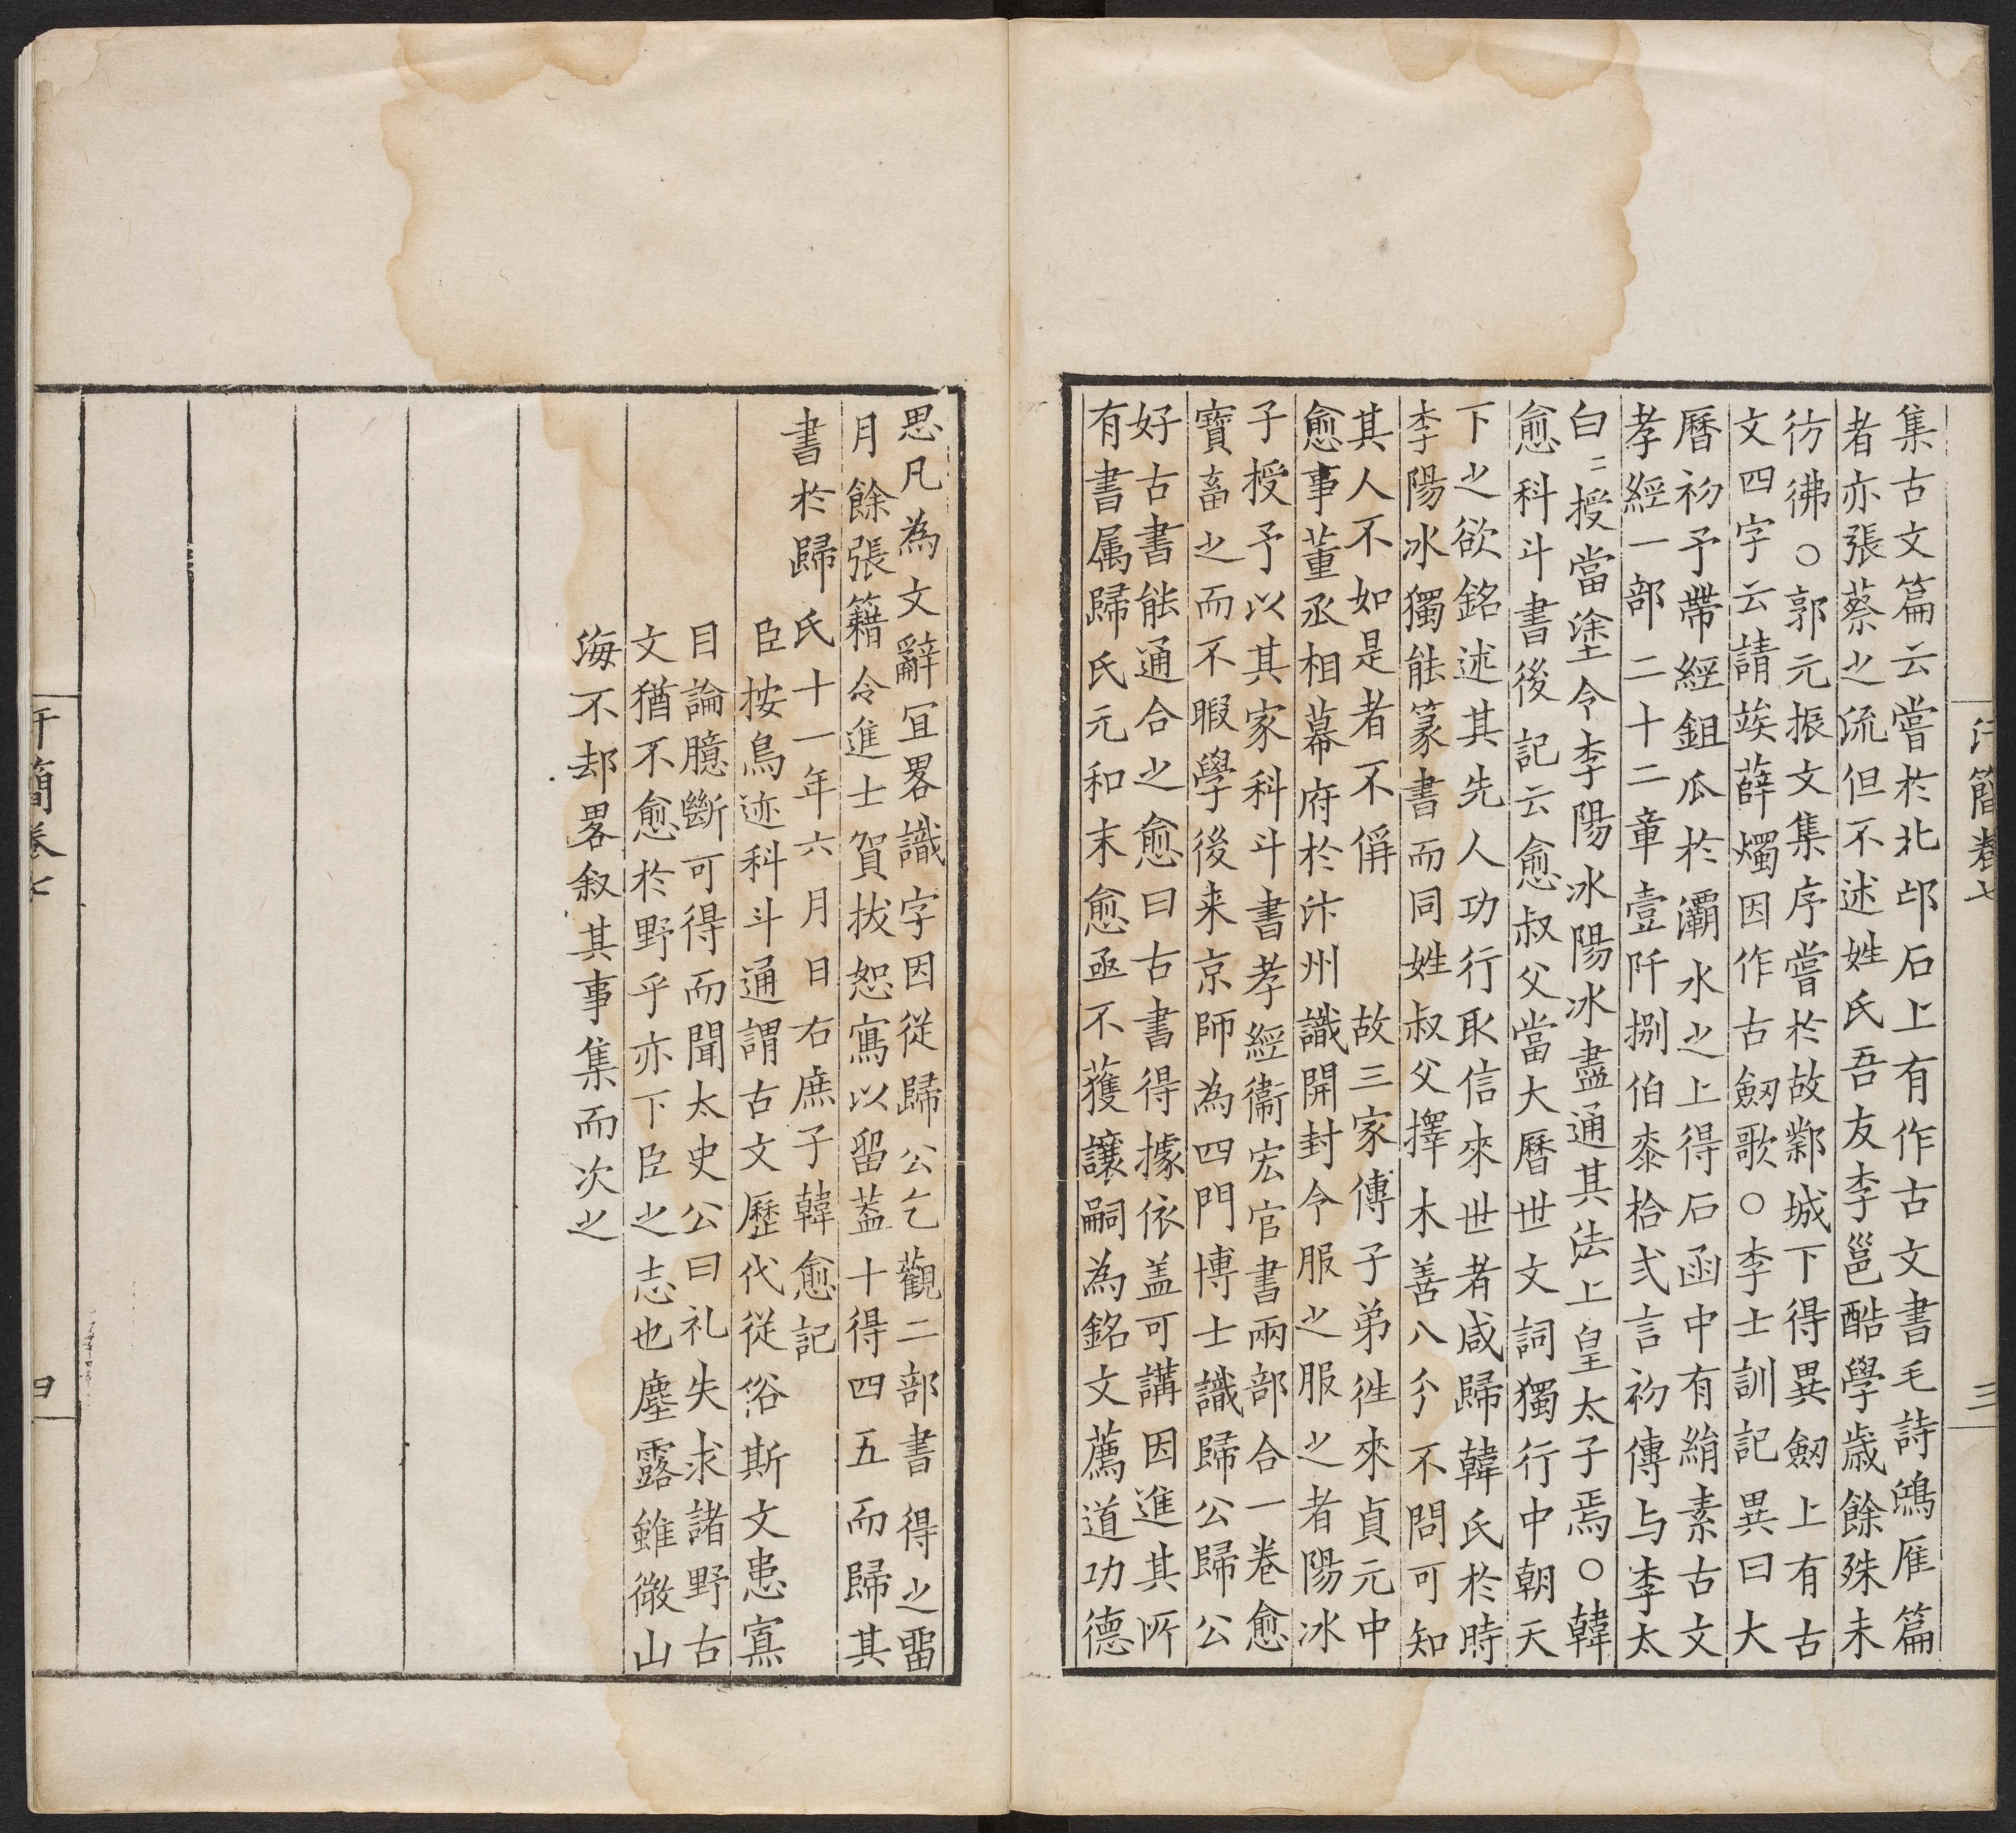 汗簡卷七
三
集古文篇云嘗於北邙石上有作古文書毛詩鴻雁篇
者亦張蔡之流但不述姓氏吾友李邕酷學歲餘殊未
彷彿○郭元振文集序嘗於故鄴城下得異劒上有古
文四字云請俟薛燭因作古劒歌○李士訓記異曰大
曆初予帶經鉏瓜於灞水之上得石函中有絹素古文
孝經一部二十二章壹阡捌伯桼拾弍言初傳与李太
白二授當塗令李陽冰陽冰盡通其法上皇太子焉○韓
愈科斗書後記云愈叔父當大曆世文詞獨行中朝天
下之欲銘述其先人功行取信來世者咸歸韓氏於時
李陽冰獨能篆書而同姓叔父擇木善八分不問可知
其人不如是者不偁　故三家傳子弟徃來貞元中
愈事董丞相幕府於汴州識開封令服之服之者陽冰
子授予以其家科斗書孝經衞宏官書兩部合一卷愈
寶畜之而不暇學後来京師為四門博士識歸公歸公
好古書能通合之愈曰古書得據依盖可講因進其所
有書属歸氏元和末愈亟不獲讓嗣為銘文薦道功德
思凡為文辭宜畧識字因從歸公乞觀二部書得之畱
月餘張籍令進士賀拔恕寫以留蓋十得四五而歸其
書於歸氏十一年六月日右庶子韓愈記
臣按鳥迹科斗通謂古文歷代從俗斯文患寡
目論臆斷可得而聞太史公曰礼失求諸野古
文猶不愈於野乎亦下臣之志也塵露雖微山
海不却畧叙其事集而次之
汗簡卷七
四